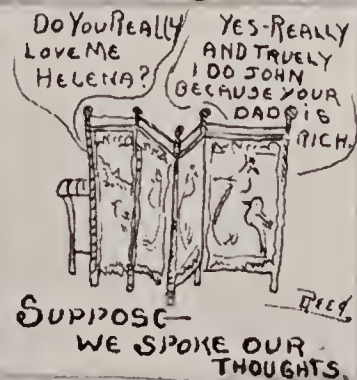 DO YOU REALLY
LOVE ME
HELENA?
YES-REALLY
AND TRUELY
I DO JOHN
BECAUSE YOUR
DAD IS
RICH.
REED
SUPPOSE—
WE SPOKE OUR
THOUGHTS.